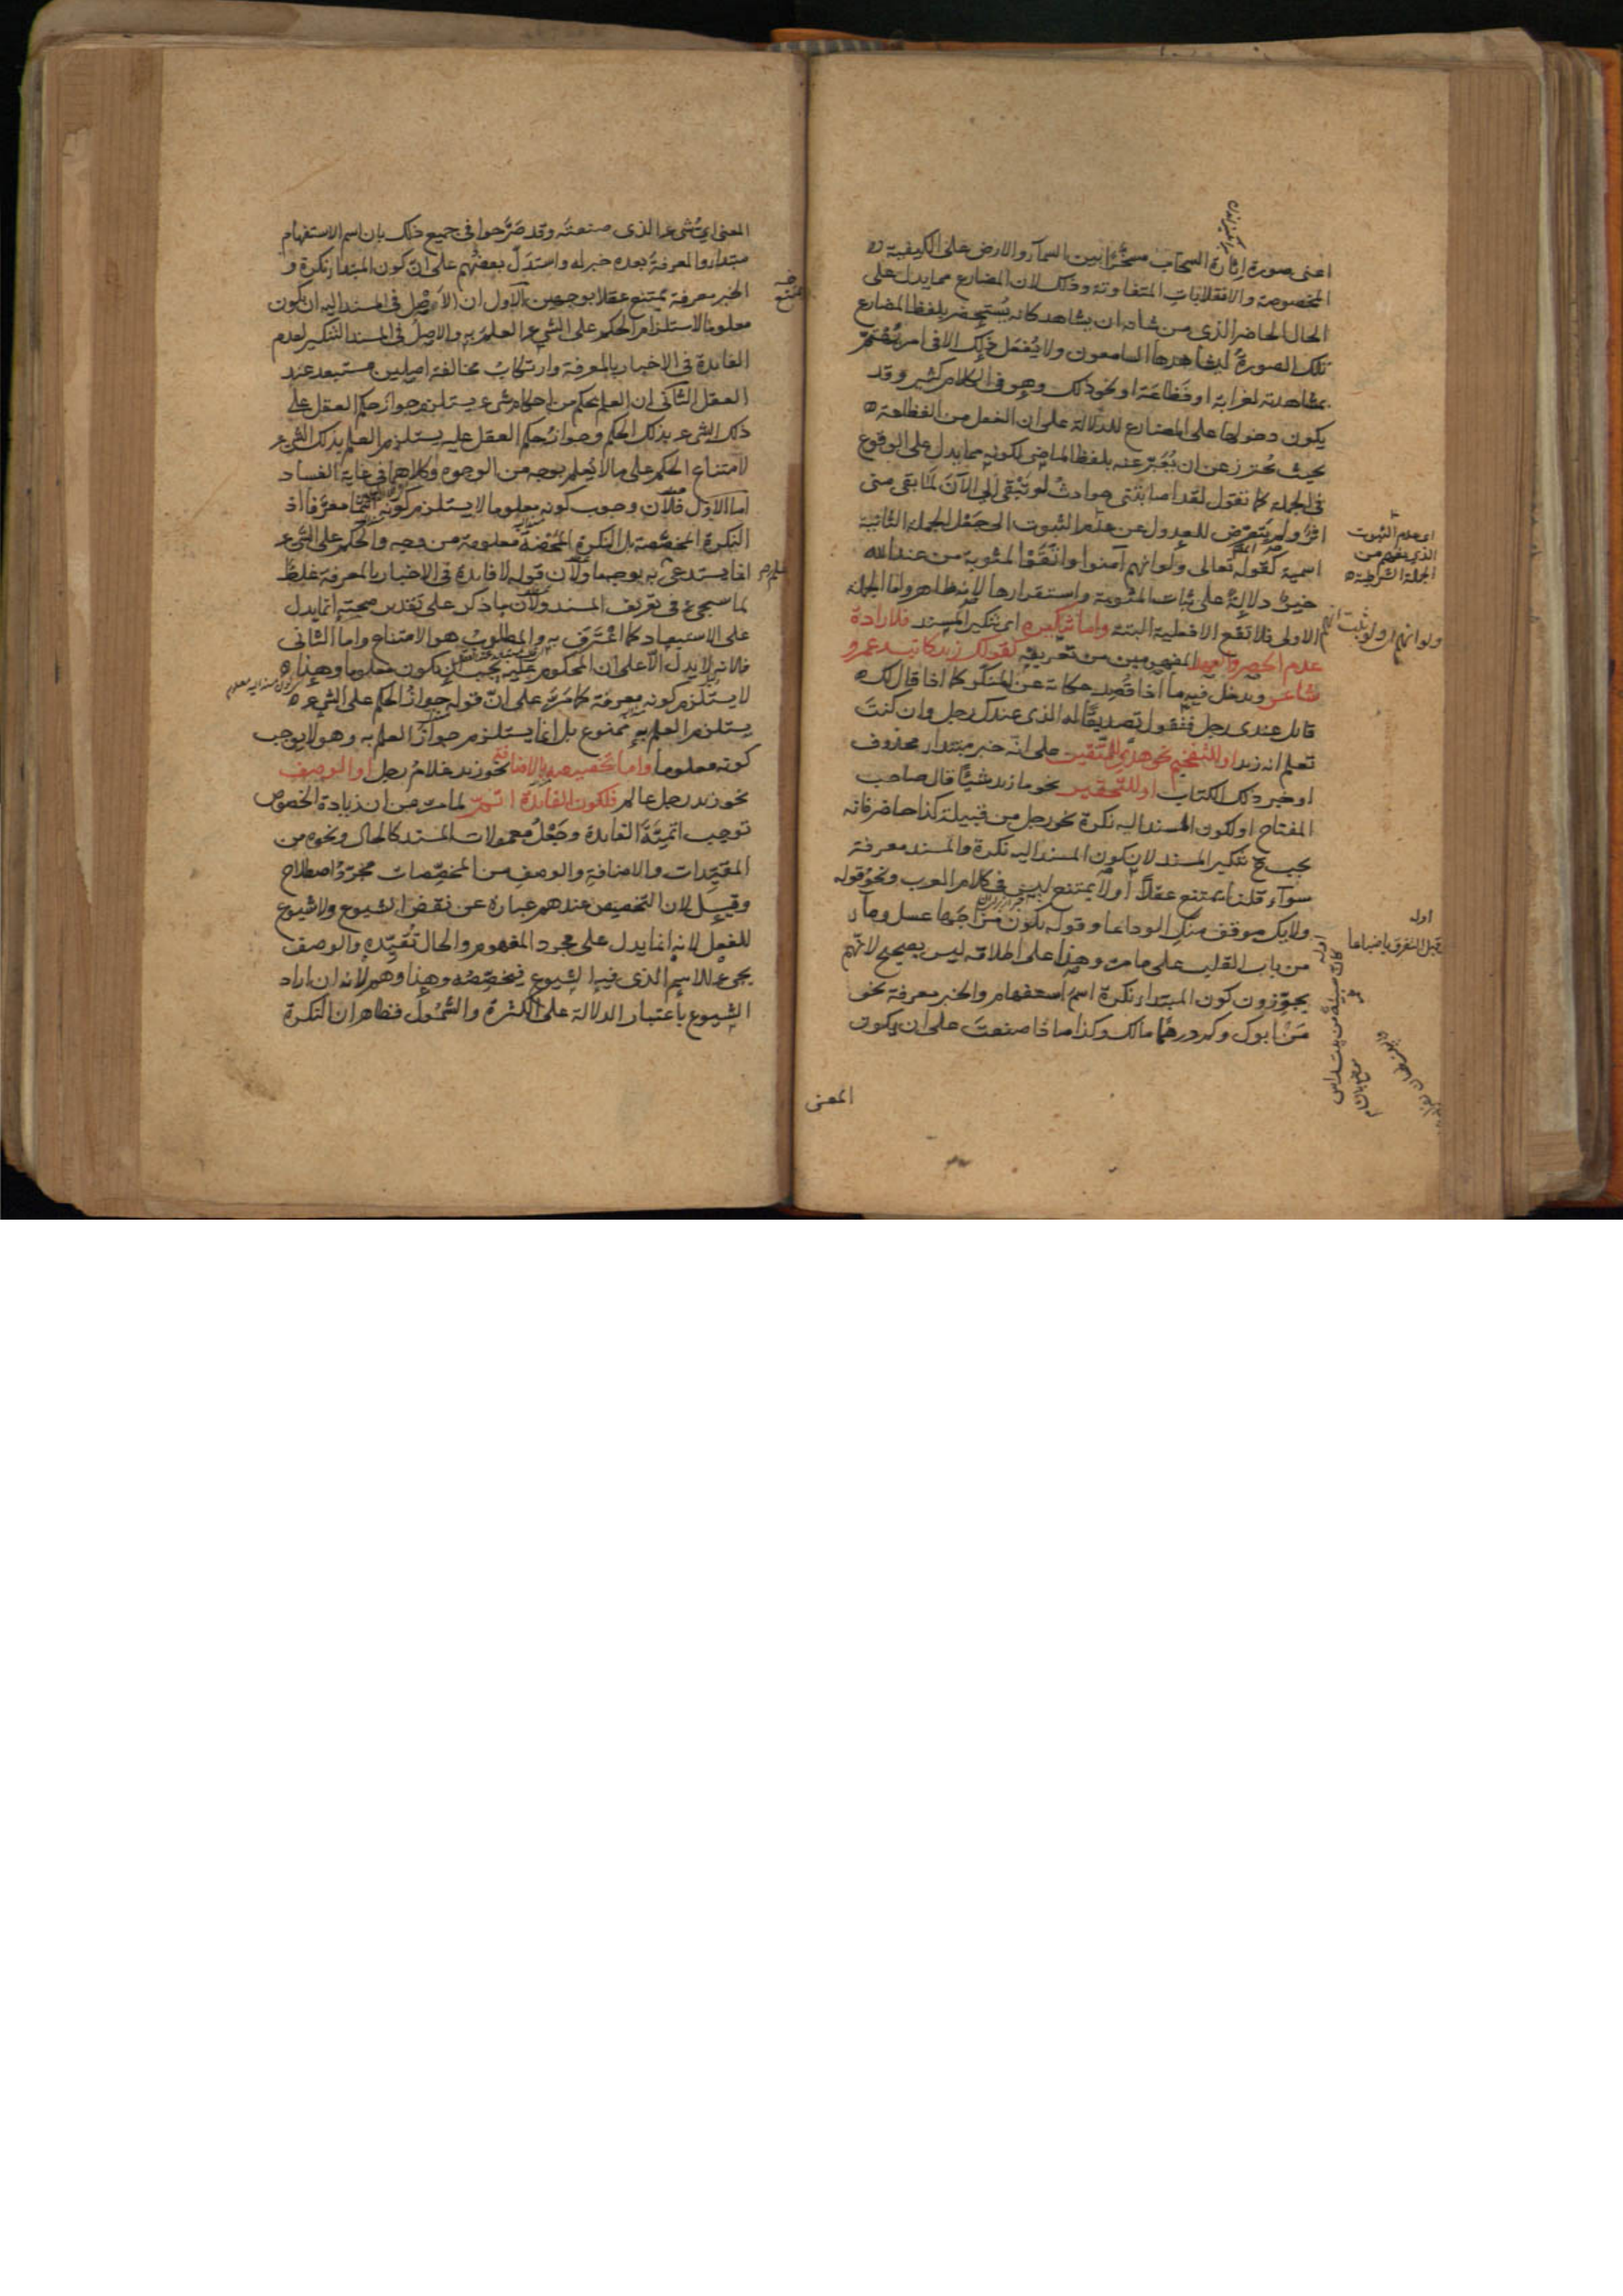 اعنى صورة إثارة السحاب مسخَّرًا بين السمآء والارض على الكيفية
المخصوصة والانقلابات المتفاوتة وذلك لان المضارع مما يدل على
الحال الحاضر الذى من شأنه ان يشاهد كانه يُستحضر بلفظ المضارع
تلك الصورةُ ليشاهدها السامعون ولا يُفعل ذلك الا فى امر يُهتمّ
بمشاهدته لغرابة او فَظاعة او نحو ذلك وهو فى الكلام كثير وقد
يكون دخولها على المضارع للدلالة على ان الفعل من الفظاعة
بحيث يُحترز عن ان يُعبَّر عنه بلفظ الماضى لكونه مما يدل على الوقوع
فى الجملة كما تقول لقد اصابتنى حوادثُ لو تبقى الى الآن لما بقى منى
اثرٌ ولم يتعرّض للعدول عن عدم الثبوت الى جعل الجملة الثانية
اسمية كقوله تعالى ولو انهم آمنوا واتّقَوْا لمثوبة من عند الله
خيرٌ دلالةً على ثبات المثوبة واستقرارها لانه ظاهر واما الجملة
الاولى فلا تقع الا فعلية البتة واما تنكيره اى تنكير المسند فلارادة
عدم الحصر والعهد المفهومين من تعريفه كقولك زيد كاتب وعمرو
شاعر ويدخل فيه ما اذا قُصد حكاية عن المنكّر كما اذا قال لك
قائل عندى رجل فتقول تصديقًا له الذى عندك رجل وان كنتَ
تعلم انه زيد او للتفخيم نحو هدًى للمتّقين على انّه خبر مبتدأ محذوف
او خبر ذلك الكتاب او للتحقير نحو ما زيد شيئًا قال صاحب
المفتاح او لكون المسند اليه نكرة نحو رجل من قبيلة كذا حاضر فانه
يجب ح تنكير المسند لان كون المسند اليه نكرة والمسند معرفة
سوآء قلنا يمتنع عقلاً أو لا يمتنع ليس فى كلام العرب ونحوُ قوله
ولا يك موقف منك الوداعا وقوله يكون مزاجَها عسل ومآء
من باب القلب على ما مر وهذا على اطلاقه ليس بصحيح لانّهم
يجوّزون كون المبتدأ نكرة اسم استفهام والخبر معرفة نحو
مَنْ ابوك وكم درهمًا مالك وكذا ماذا صنعتَ على ان يكون
المعنى
اى عدم الثبوت
الذى يفهم من
الجملة الشرطية
ولو انهم اى ولو ثبت انهم
اوله
قفى قبل التفرق يا ضباعا
اوله
كأن سبيئة من بيت راس
المعنى اىّ شىء الذى صنعتَه وقد صَرَّحوا فى جميع ذلك بان اسم الاستفهام
مبتدأ والمعرفةُ بعده خبر له واستدلّ بعضُهم على انّ كون المبتدأ نكرة و
الخبر معرفة يمتنع عقلا بوجهين الاول ان الاصل فى المسند اليه ان يكون
معلوما لاستلزام الحكم على الشىء العلمَ به والاصلُ فى المسند التنكير لعدم
الفائدة فى الاخبار بالمعرفة وارتكابُ مخالفة اصلين مستبعد عند
العقل الثانى ان العلم بحكم من احكام شىء يستلزم جواز حكم العقل على
ذلك الشىء بذلك الحكم وجوازُ حكم العقل عليه يستلزم العلم بذلك الشىء
لامتناع الحكم على ما لا يُعلم بوجه من الوجوه وكلاهما فى غاية الفساد
اما الاول فلانّ وجوب كونه معلوما لا يستلزم كونه اسما معرّفا اذ
النكرة المخصّصة بل النكرة المَحْضة معلومة من وجه والحكم على الشىء
انما يستدعى العلم به بوجهما ولانّ قوله لا فائدة فى الاخبار بالمعرفة غلط
لما سيجىء فى تعريف المسند ولان ما ذكر على تقدير صحته إنما يدل
على الاستبعاد كما اعْتَرف به والمطلوب هو الامتناع واما الثانى
فلانه لا يدل الّا على ان المحكوم عليه يجب ان يكون معلوما وهذا
لا يستلزم كونه معرفة كما مَرّ على انّ قوله جوازُ الحكم على الشىء
يستلزم العلم به ممنوع بل انما يستلزم جوازَ العلم به وهو لا يوجب
كونه معلوما واما تخصيصه بالاضافة نحو زيد غلامُ رجل او الوصف
نحو زيد رجل عالم فلكون الفائدة اتمّ لما مر من ان زيادة الخصوص
توجب اتمّيّةَ الفائدة وجَعْلُ معمولات المسند كالحال ونحوه من
المقيِّدات والاضافةِ والوصفِ من المخصِّصات مجرّدُ اصطلاح
وقيل لان التخصيص عندهم عبارة عن نقض الشيوع ولا شيوع
للفعل لانه انما يدل على مجرد المفهوم والحال تُقيّده والوصف
يجىء للاسم الذى فيه الشيوع فيخصّصُه وهذا وهم لانه ان اراد
الشيوع باعتبار الدلالة على الكثرة والشُّمُول فظاهر ان النكرة